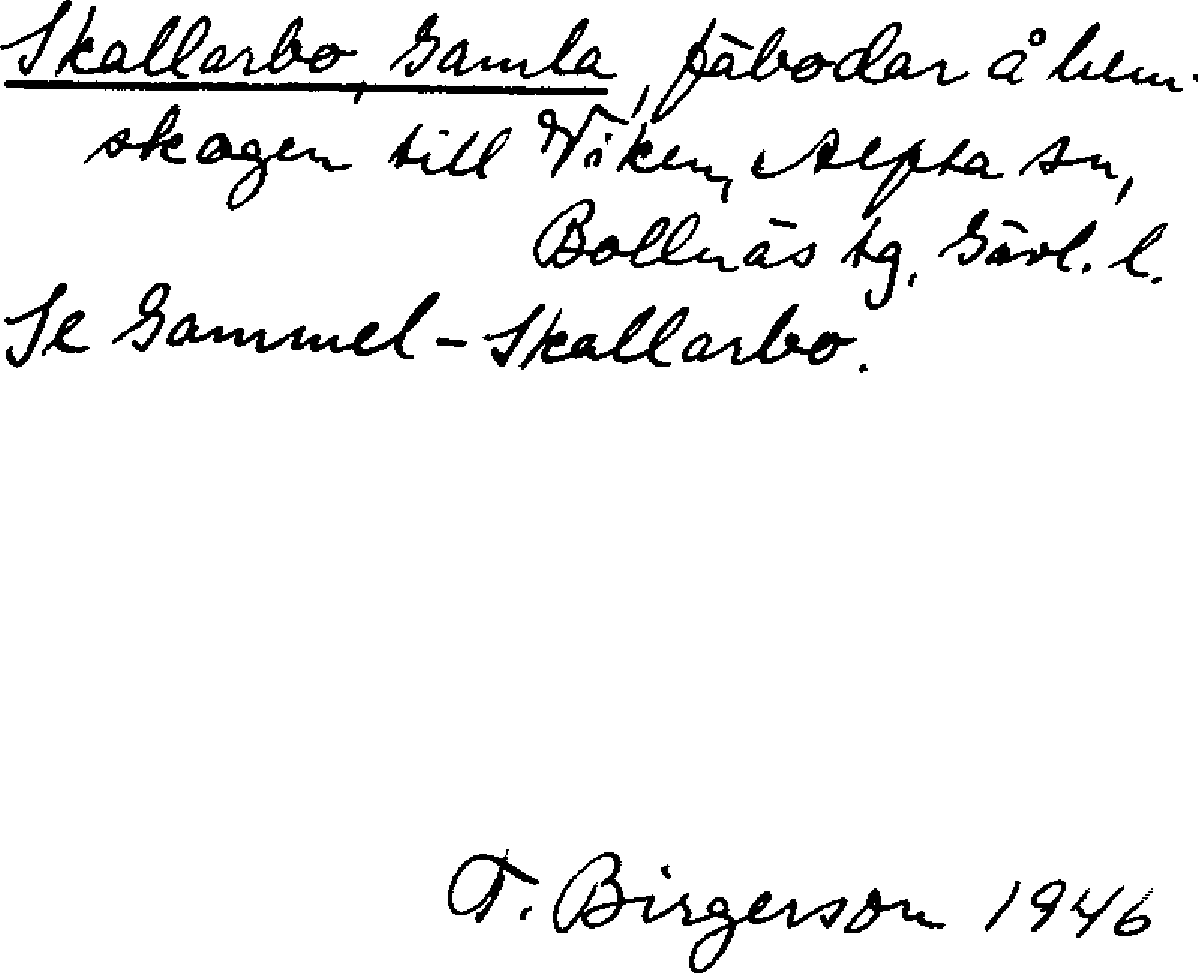 Skallarbo, Gamla, fäbodar å hem-
skogen till Viken, Alfta sn,
Bollnäs tg, Gävl. l.
Se Gammel-Skallarbo.
T. Birgerson 1946